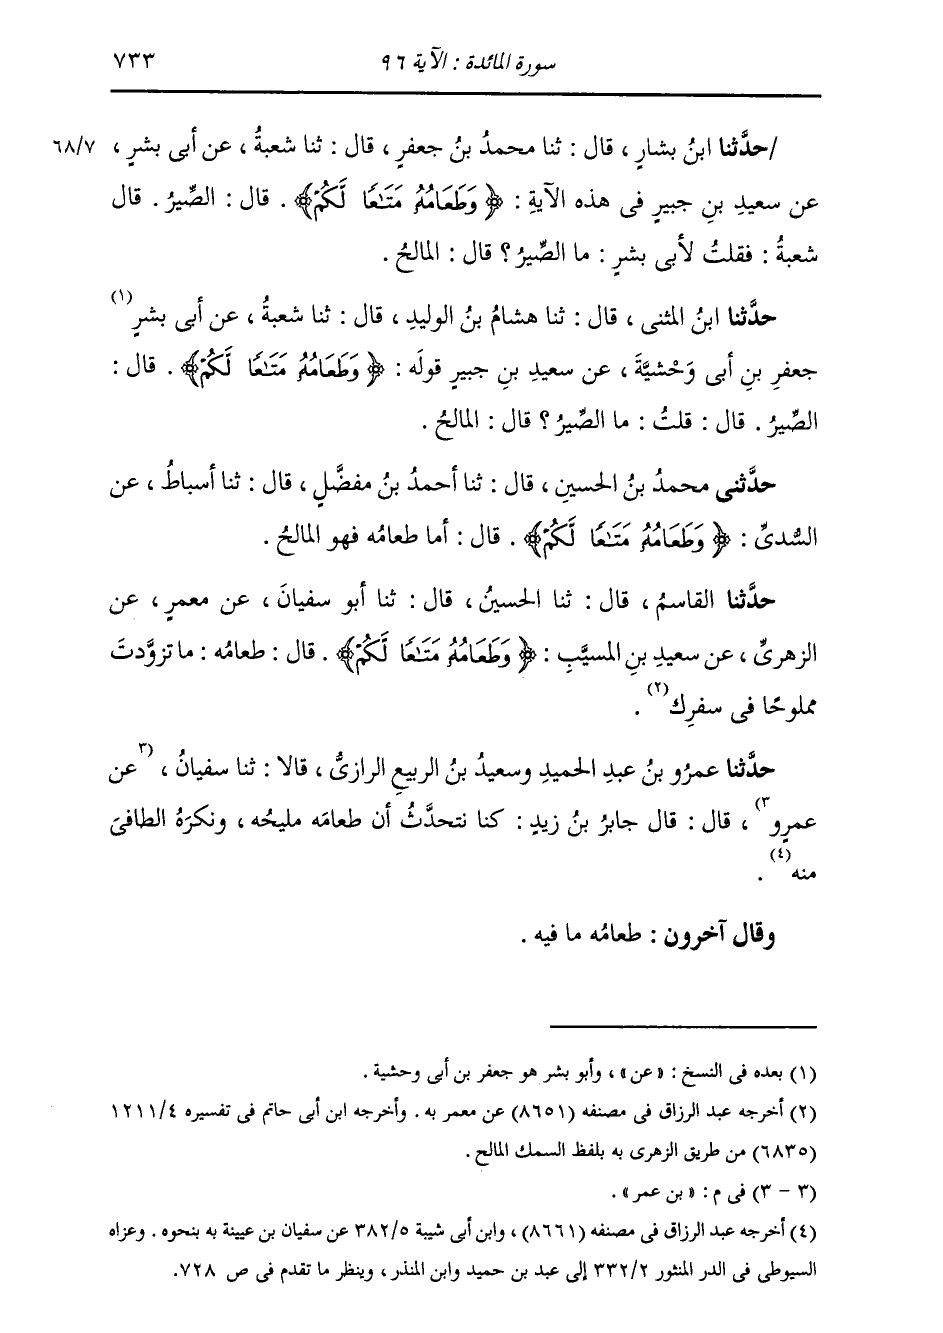 سورة المائدة : الآية ٩٦
٧٣٣
/حدَّثنا ابنُ بشارٍ ، قال : ثنا محمدُ بنُ جعفرٍ ، قال : ثنا شعبةُ ، عن أبى بشرٍ ، ٦٨/٧
عن سعيدِ بنِ جبيرٍ فى هذه الآيةِ : ﴿ وَطَعَامُهُ مَتَٰعًا لَّكُمْ ﴾ . قال : الصِّيرُ . قال
شعبةُ : فقلتُ لأبى بشرٍ : ما الصِّيرُ ؟ قال : المالحُ .
حدَّثنا ابنُ المثنى ، قال : ثنا هشامُ بنُ الوليدِ ، قال : ثنا شعبةُ ، عن أبى بشرٍ(١)
جعفرِ بنِ أبى وَحْشيَّةَ ، عن سعيدِ بنِ جبيرٍ قولَه : ﴿ وَطَعَامُهُ مَتَٰعًا لَّكُمْ ﴾ . قال :
الصِّيرُ . قال : قلتُ : ما الصِّيرُ ؟ قال : المالحُ .
حدَّثنى محمدُ بنُ الحسينِ ، قال : ثنا أحمدُ بنُ مفضَّلٍ ، قال : ثنا أسباطُ ، عن
السُّدىِّ : ﴿ وَطَعَامُهُ مَتَٰعًا لَّكُمْ ﴾ . قال : أما طعامُه فهو المالحُ .
حدَّثنا القاسمُ ، قال : ثنا الحسينُ ، قال : ثنا أبو سفيانَ ، عن معمرٍ ، عن
الزهرىِّ ، عن سعيدِ بنِ المسيَّبِ : ﴿ وَطَعَامُهُ مَتَٰعًا لَّكُمْ ﴾ . قال : طعامُه : ما تزوَّدتَ
مملوحًا فى سفرِك(٢) .
حدَّثنا عمرُو بنُ عبدِ الحميدِ وسعيدُ بنُ الربيعِ الرازىُّ ، قالا : ثنا سفيانُ ، (٣عن
عمرٍو٣) ، قال : قال جابرُ بنُ زيدٍ : كنا نتحدَّثُ أن طعامَه مليحُه ، ونكرَهُ الطافىَ
منه(٤) .
وقال آخرون : طعامُه ما فيه .
(١) بعده فى النسخ : « عن » ، وأبو بشر هو جعفر بن أبى وحشية .
(٢) أخرجه عبد الرزاق فى مصنفه (٨٦٥١) عن معمر به . وأخرجه ابن أبى حاتم فى تفسيره ١٢١١/٤
(٦٨٣٥) من طريق الزهرى به بلفظ السمك المالح .
(٣ - ٣) فى م : « بن عمر » .
(٤) أخرجه عبد الرزاق فى مصنفه (٨٦٦١) ، وابن أبى شيبة ٣٨٢/٥ عن سفيان بن عيينة به بنحوه . وعزاه
السيوطى فى الدر المنثور ٣٣٢/٢ إلى عبد بن حميد وابن المنذر ، وينظر ما تقدم فى ص ٧٢٨.